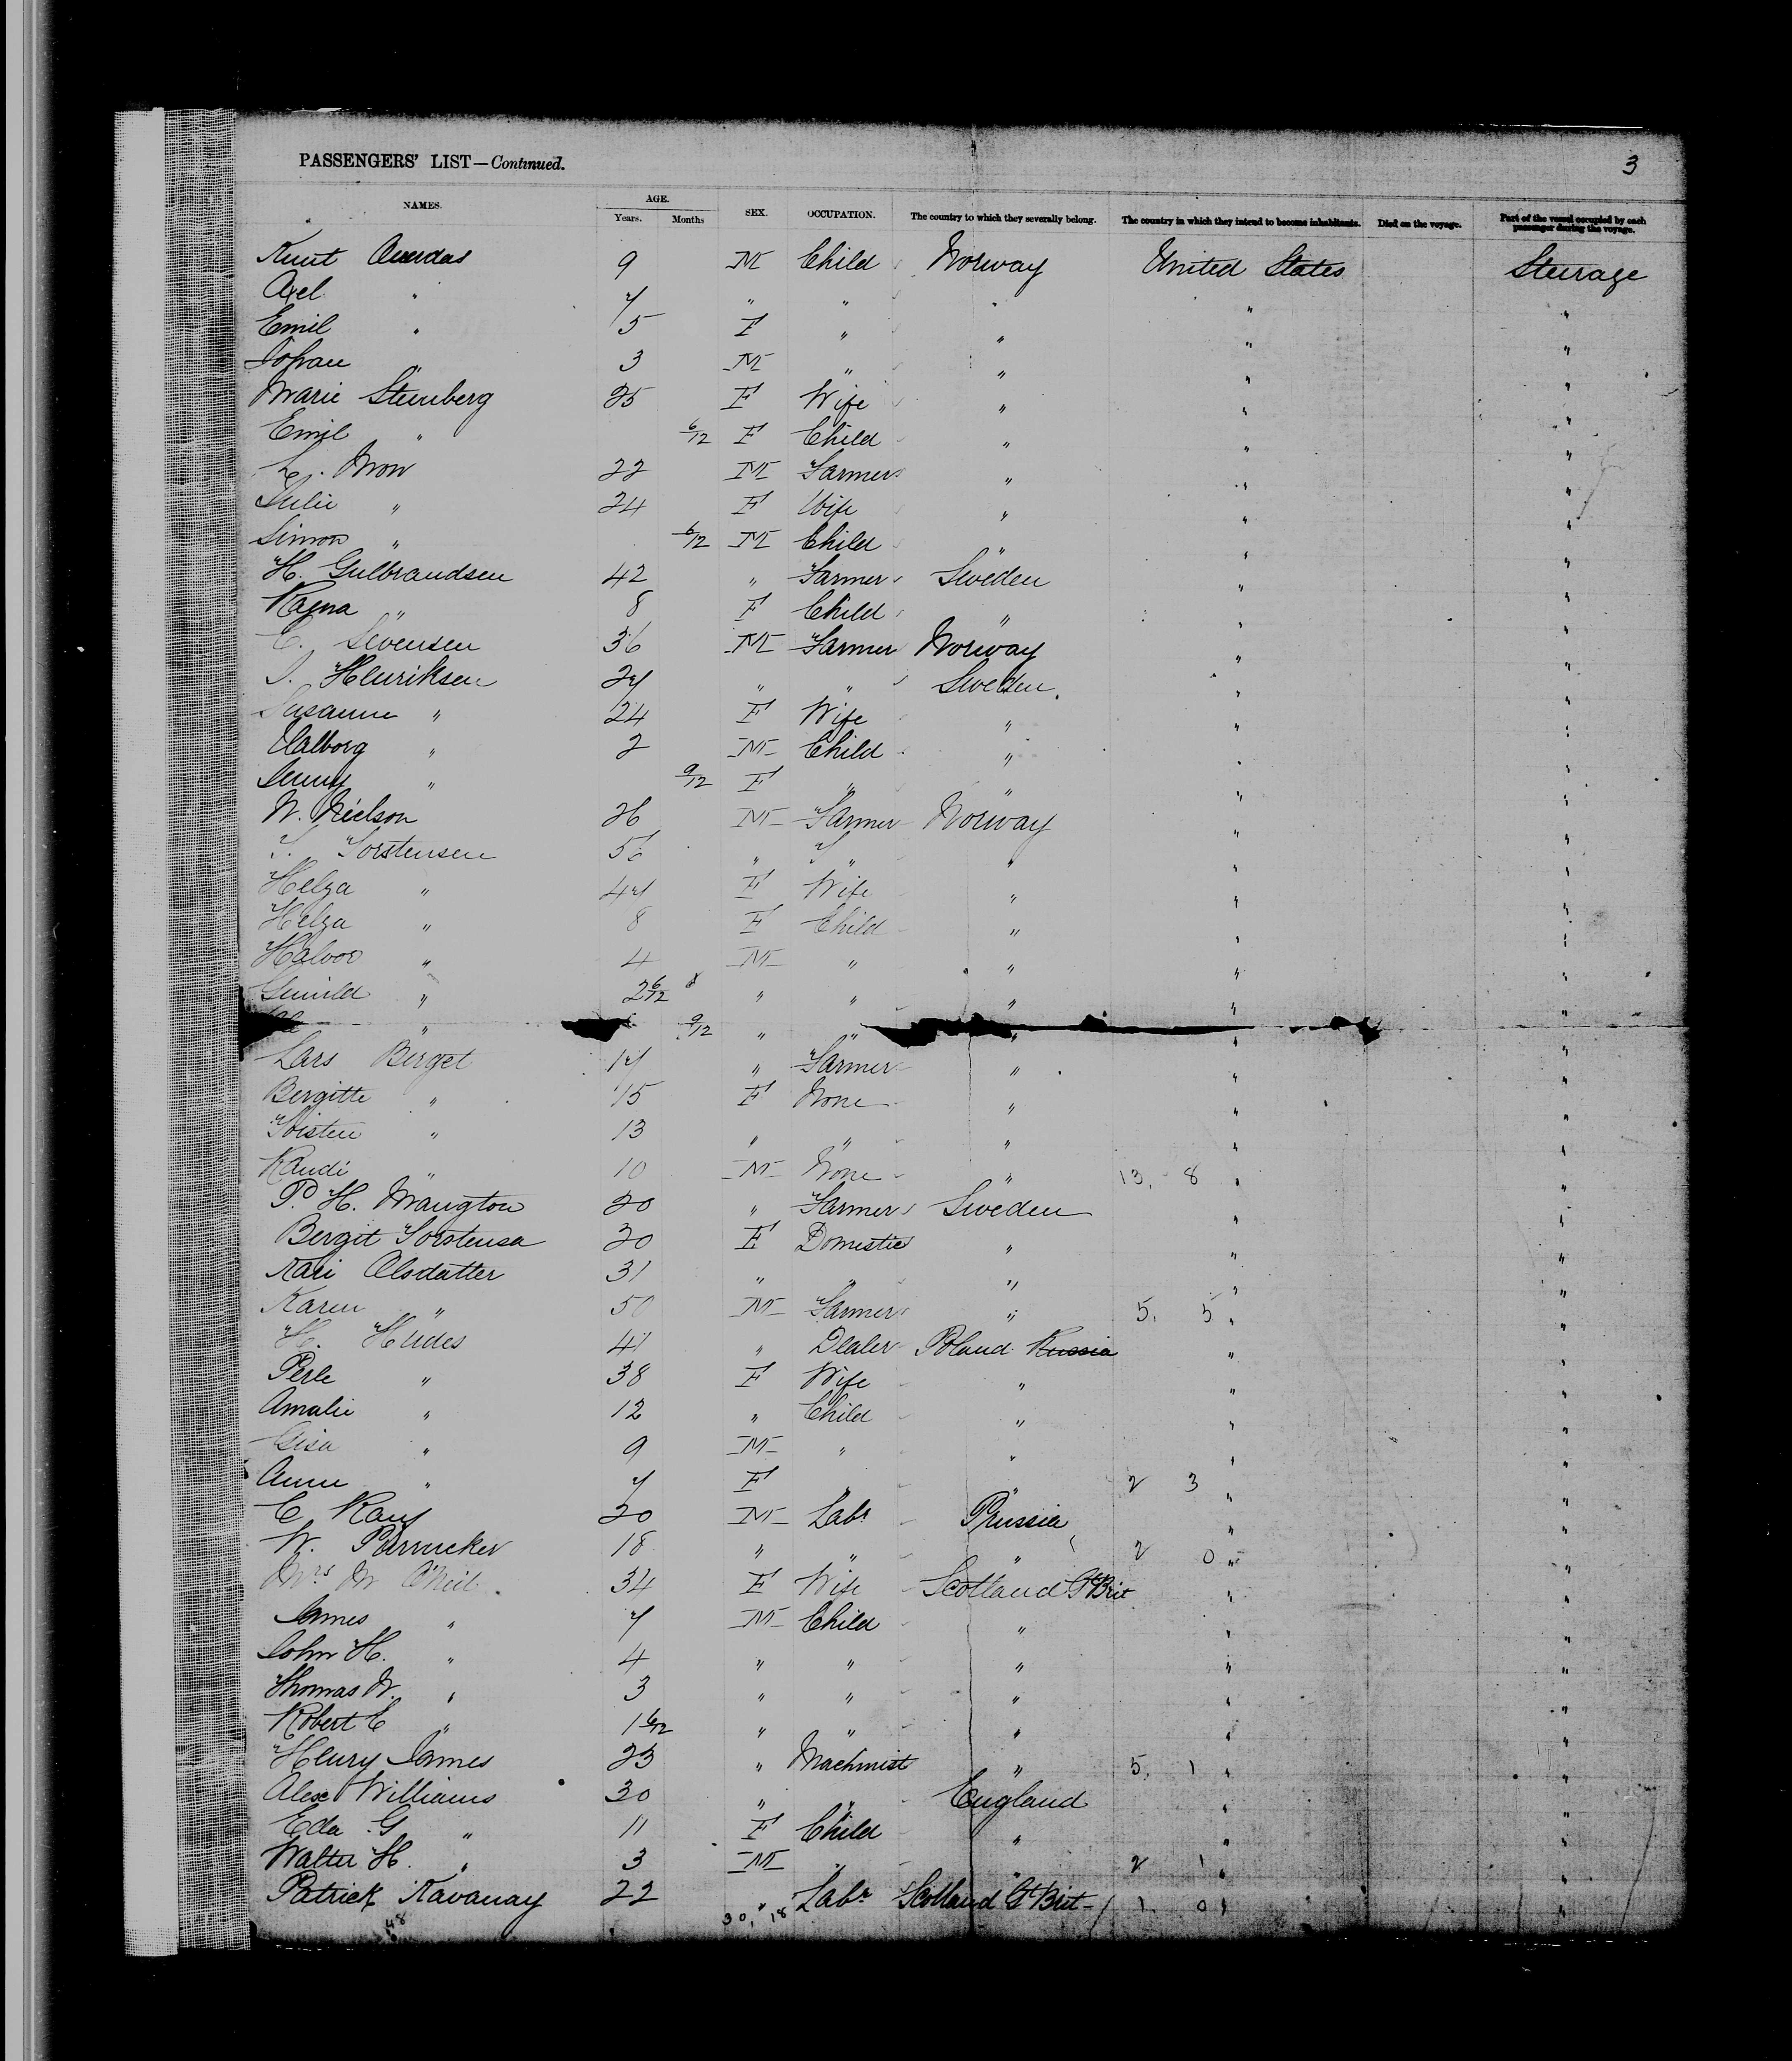 PASSENGERS' LIST—Continued. 3
NAMES. AGE. Years. Months SEX. OCCUPATION. The country to which they severally belong. The country in which they intend to become inhabitants. Died on the voyage. Part of the vessel occupied by each passenger during the voyage.
Knut 9 M Child Norway United States Steerage
Axel " 7 " " " " "
Emil " 5 F " " " "
Johan " 3 M " " " "
Marie Steinberg 25 F Wife " " "
Emil " 6/12 F Child " " "
L. Mow 22 M Farmer " " "
Julie " 24 F Wife " " "
Simon " 6/12 M Child " " "
H. Gulbrandsen 42 " Farmer Sweden " "
Ragna " 8 F Child " " "
C. Sivensen 36 M Farmer Norway " "
J. Henriksen 27 " " Sweden " "
Susanne " 24 F Wife " " "
Valborg " 2 M Child " " "
Jenny " 9/12 F " " " "
N. Nielson 26 M Farmer Norway " "
T. Torstensen 56 " " " " "
Helga " 47 F Wife " " "
Helga " 8 F Child " " "
Halvor " 4 M " " " "
Gunild " 2 6/12 " " " " "
" 9/12 " " " " "
Lars Berget 17 " Farmer " " "
Bergitte " 15 F None " " "
Torsten " 13 " " " " "
Randi " 10 M None " 13. 8 " "
P. H. Mangton 20 " Farmer Sweden " "
Bergit Torstensa 20 F Domestic " " "
Kari Olsdatter 31 " " " " "
Karen " 50 M Farmer " 5. 5 " "
H. Hudes 41 " Dealer Poland Russia " "
Perle " 38 F Wife " " "
Amalie " 12 " Child " " "
Gisa " 9 M " " " "
Anne " 7 F " " 2 3 " "
C Kaus 20 M Labr Prussia " "
W. 18 " " " 2 0 " "
Mrs M O'Neil 34 F Wife Scotland Gt Brit " "
James " 7 M Child " " "
John H. " 4 " " " " "
Thomas W. " 3 " " " " "
Robert E " 1 6/12 " " " " "
Henry James 23 " Machinist " 5. 1 " "
Alex Williams 30 " " England " "
Eda G " 11 F Child " " "
Walter H. " 3 M " " 2 1 " "
Patrick Kavanay 22 " Labr Scotland Gt Brit 1 0 " "
48 30, 18